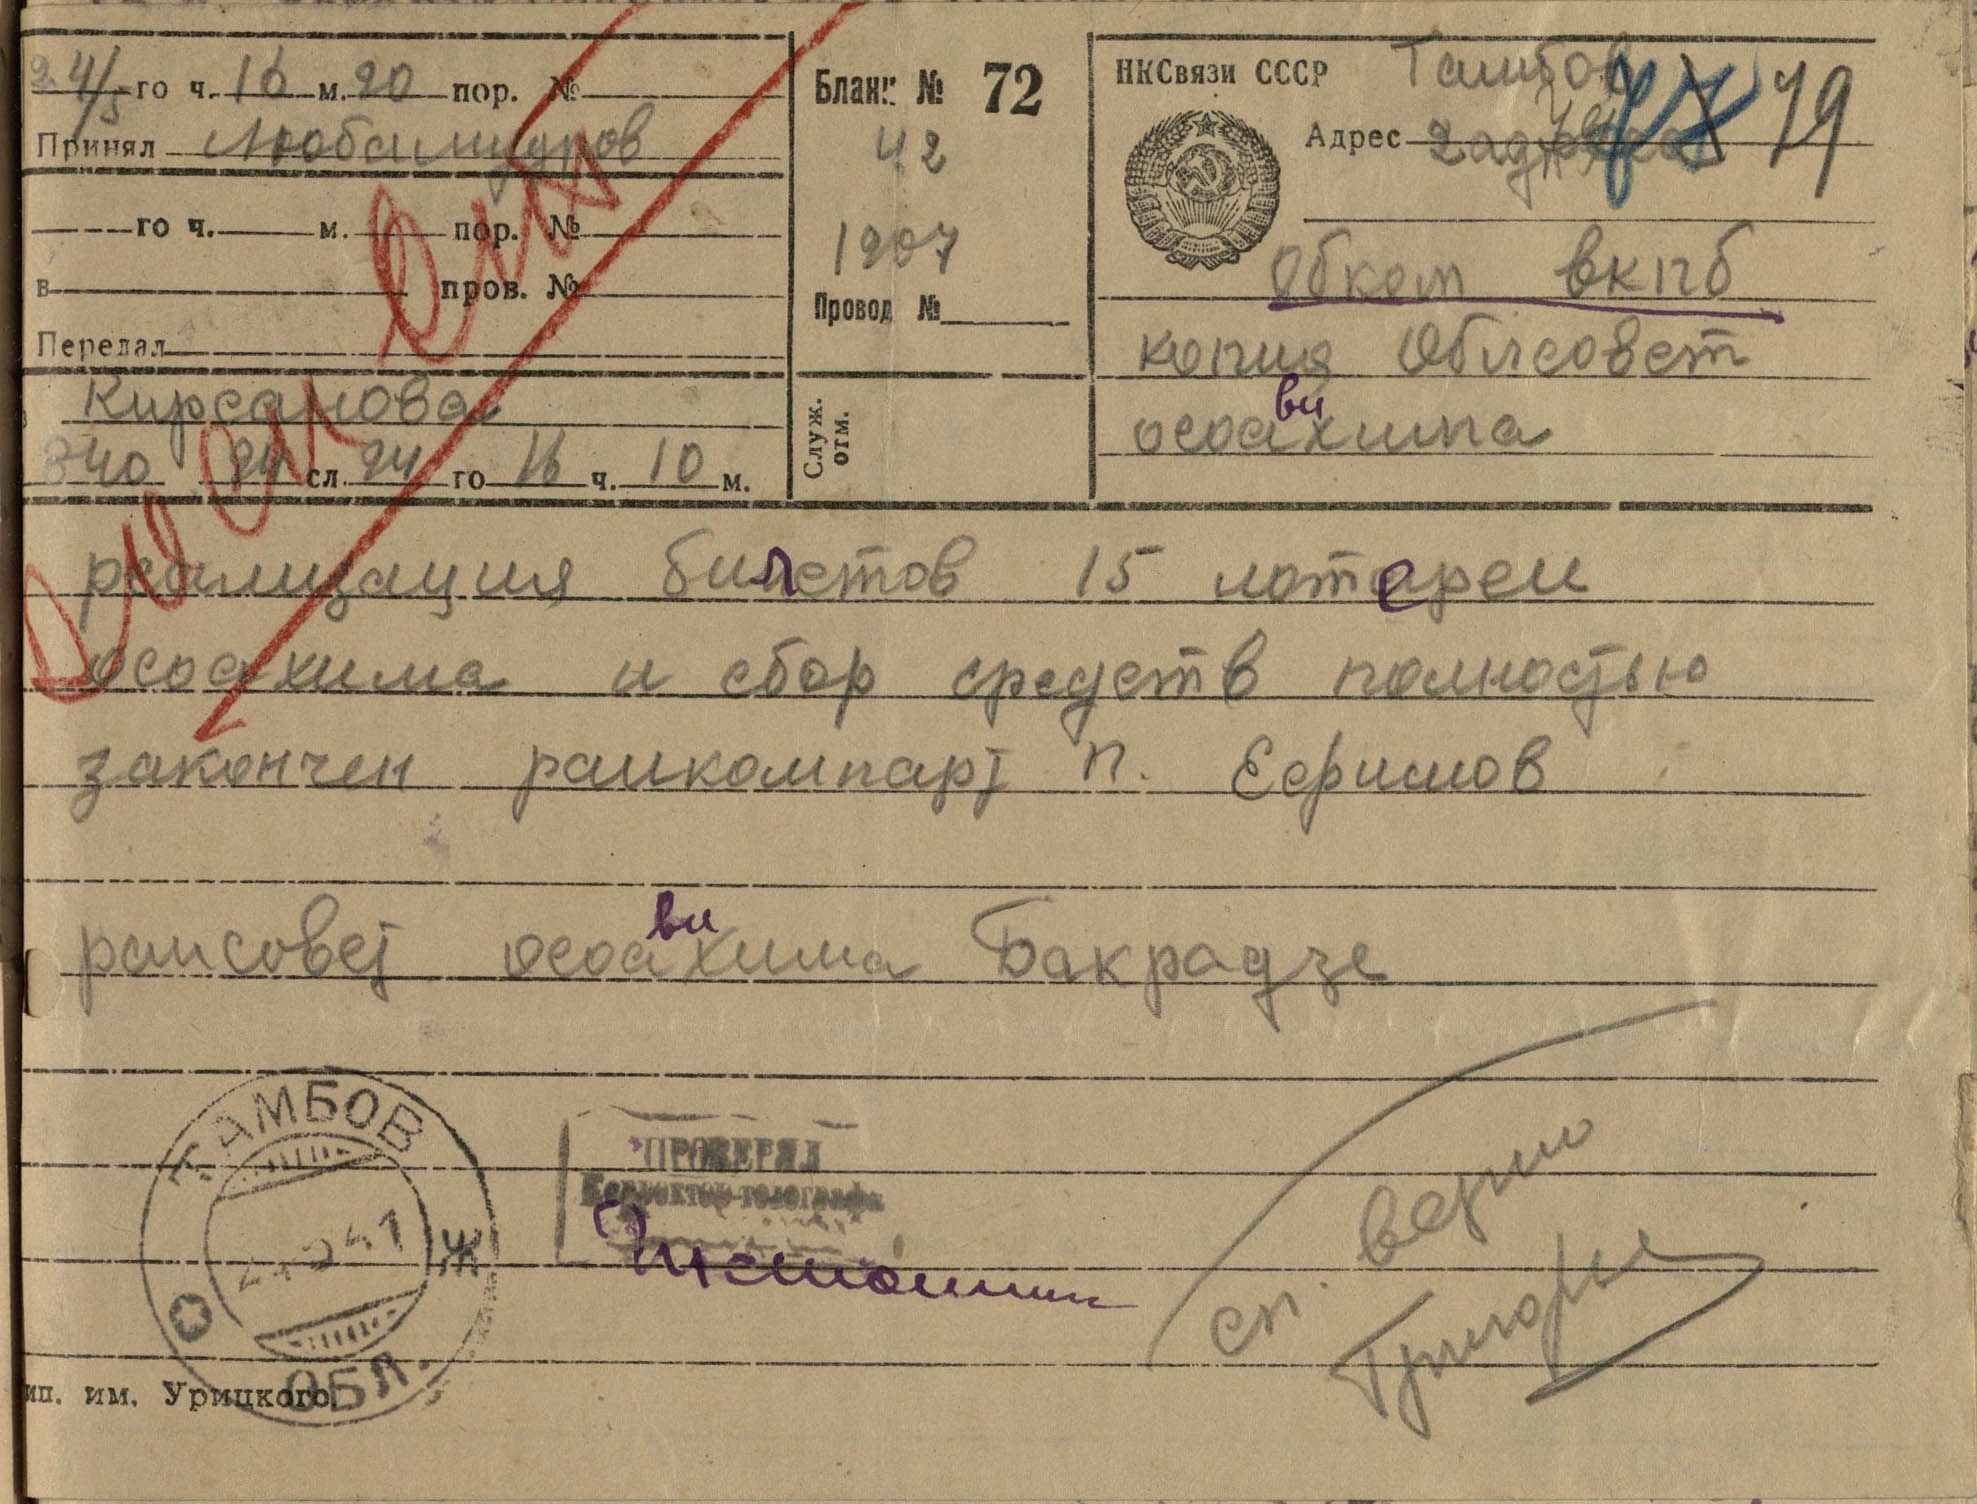 24/5 го ч. 16 м. 20 пор. №
Принял Любомудров
го ч. м. пор. №
в пров. №
Передал
Кирсанова
840 24 сл. 24 го 16 ч. 10 м.
Бланк № 72
42
1207
Провод №
Служ.
отм.
НКСвязи СССР Тамбов
79
Адрес 2 адреса
Обком вкпб
копия Облсовет
осоавихима
реализация билетов 15 лотереи
осоахима и сбор средств полностью
закончен раикомпарт п. Ефимов
раисовет осоавихима Бакрадзе
ТАМБОВ
Ж
ОБЛ.
ПРОВЕРЯЛ
Корректор телеграфа
сп. верно
ип. им. Урицкого.